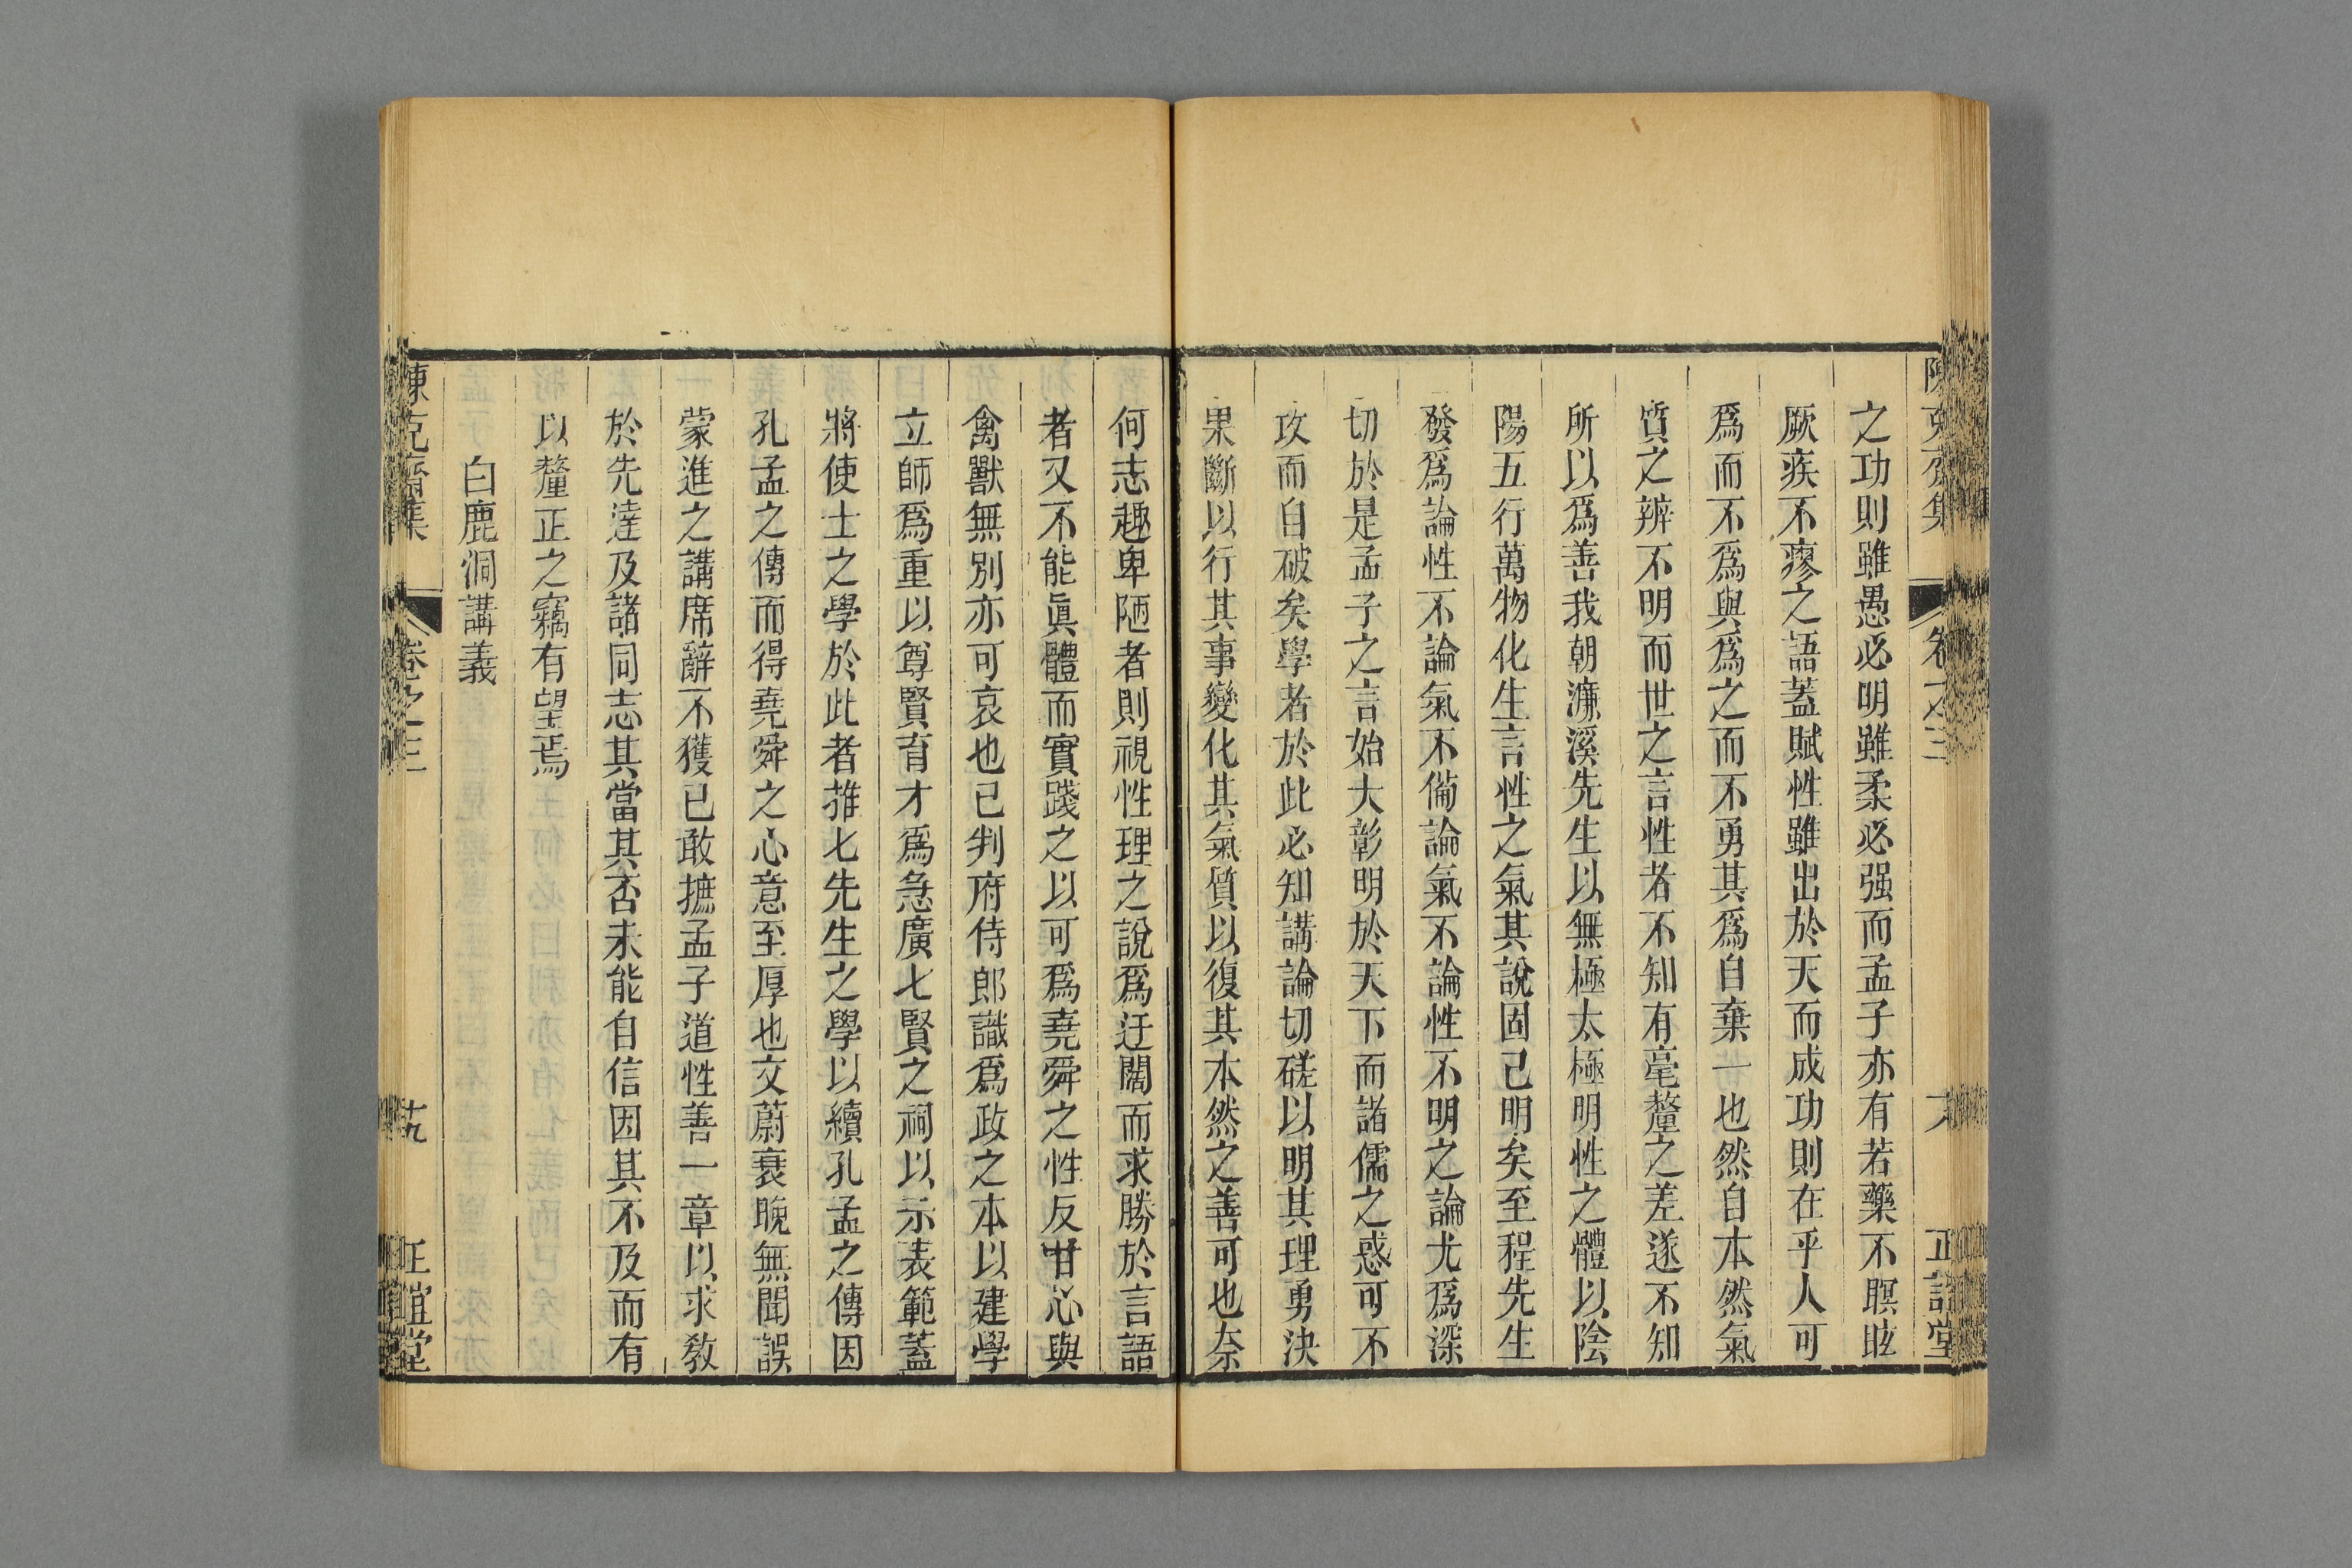 陳克齋集 卷之三 十八 正誼堂
之功則雖愚必明雖柔必强而孟子亦有若藥不瞑眩
厥疾不瘳之語蓋賦性雖出於天而成功則在乎人可
爲而不爲與爲之而不勇其爲自棄一也然自本然氣
質之辨不明而世之言性者不知有毫釐之差遂不知
所以爲善我朝濂溪先生以無極太極明性之體以陰
陽五行萬物化生言性之氣其說固已明矣至程先生
發爲論性不論氣不備論氣不論性不明之論尤爲深
切於是孟子之言始大彰明於天下而諸儒之惑可不
攻而自破矣學者於此必知講論切磋以明其理勇決
果斷以行其事變化其氣質以復其本然之善可也奈
何志趣卑陋者則視性理之說爲迂闊而求勝於言語
者又不能眞體而實踐之以可爲堯舜之性反甘心與
禽獸無別亦可哀也已判府侍郎識爲政之本以建學
立師爲重以尊賢育才爲急廣七賢之祠以示表範蓋
將使士之學於此者推七先生之學以續孔孟之傳因
孔孟之傳而得堯舜之心意至厚也文蔚衰晚無聞誤
蒙進之講席辭不獲已敢摭孟子道性善一章以求教
於先達及諸同志其當其否未能自信因其不及而有
以釐正之竊有望焉
白鹿洞講義
陳克齋集 卷之三 十九 正誼堂